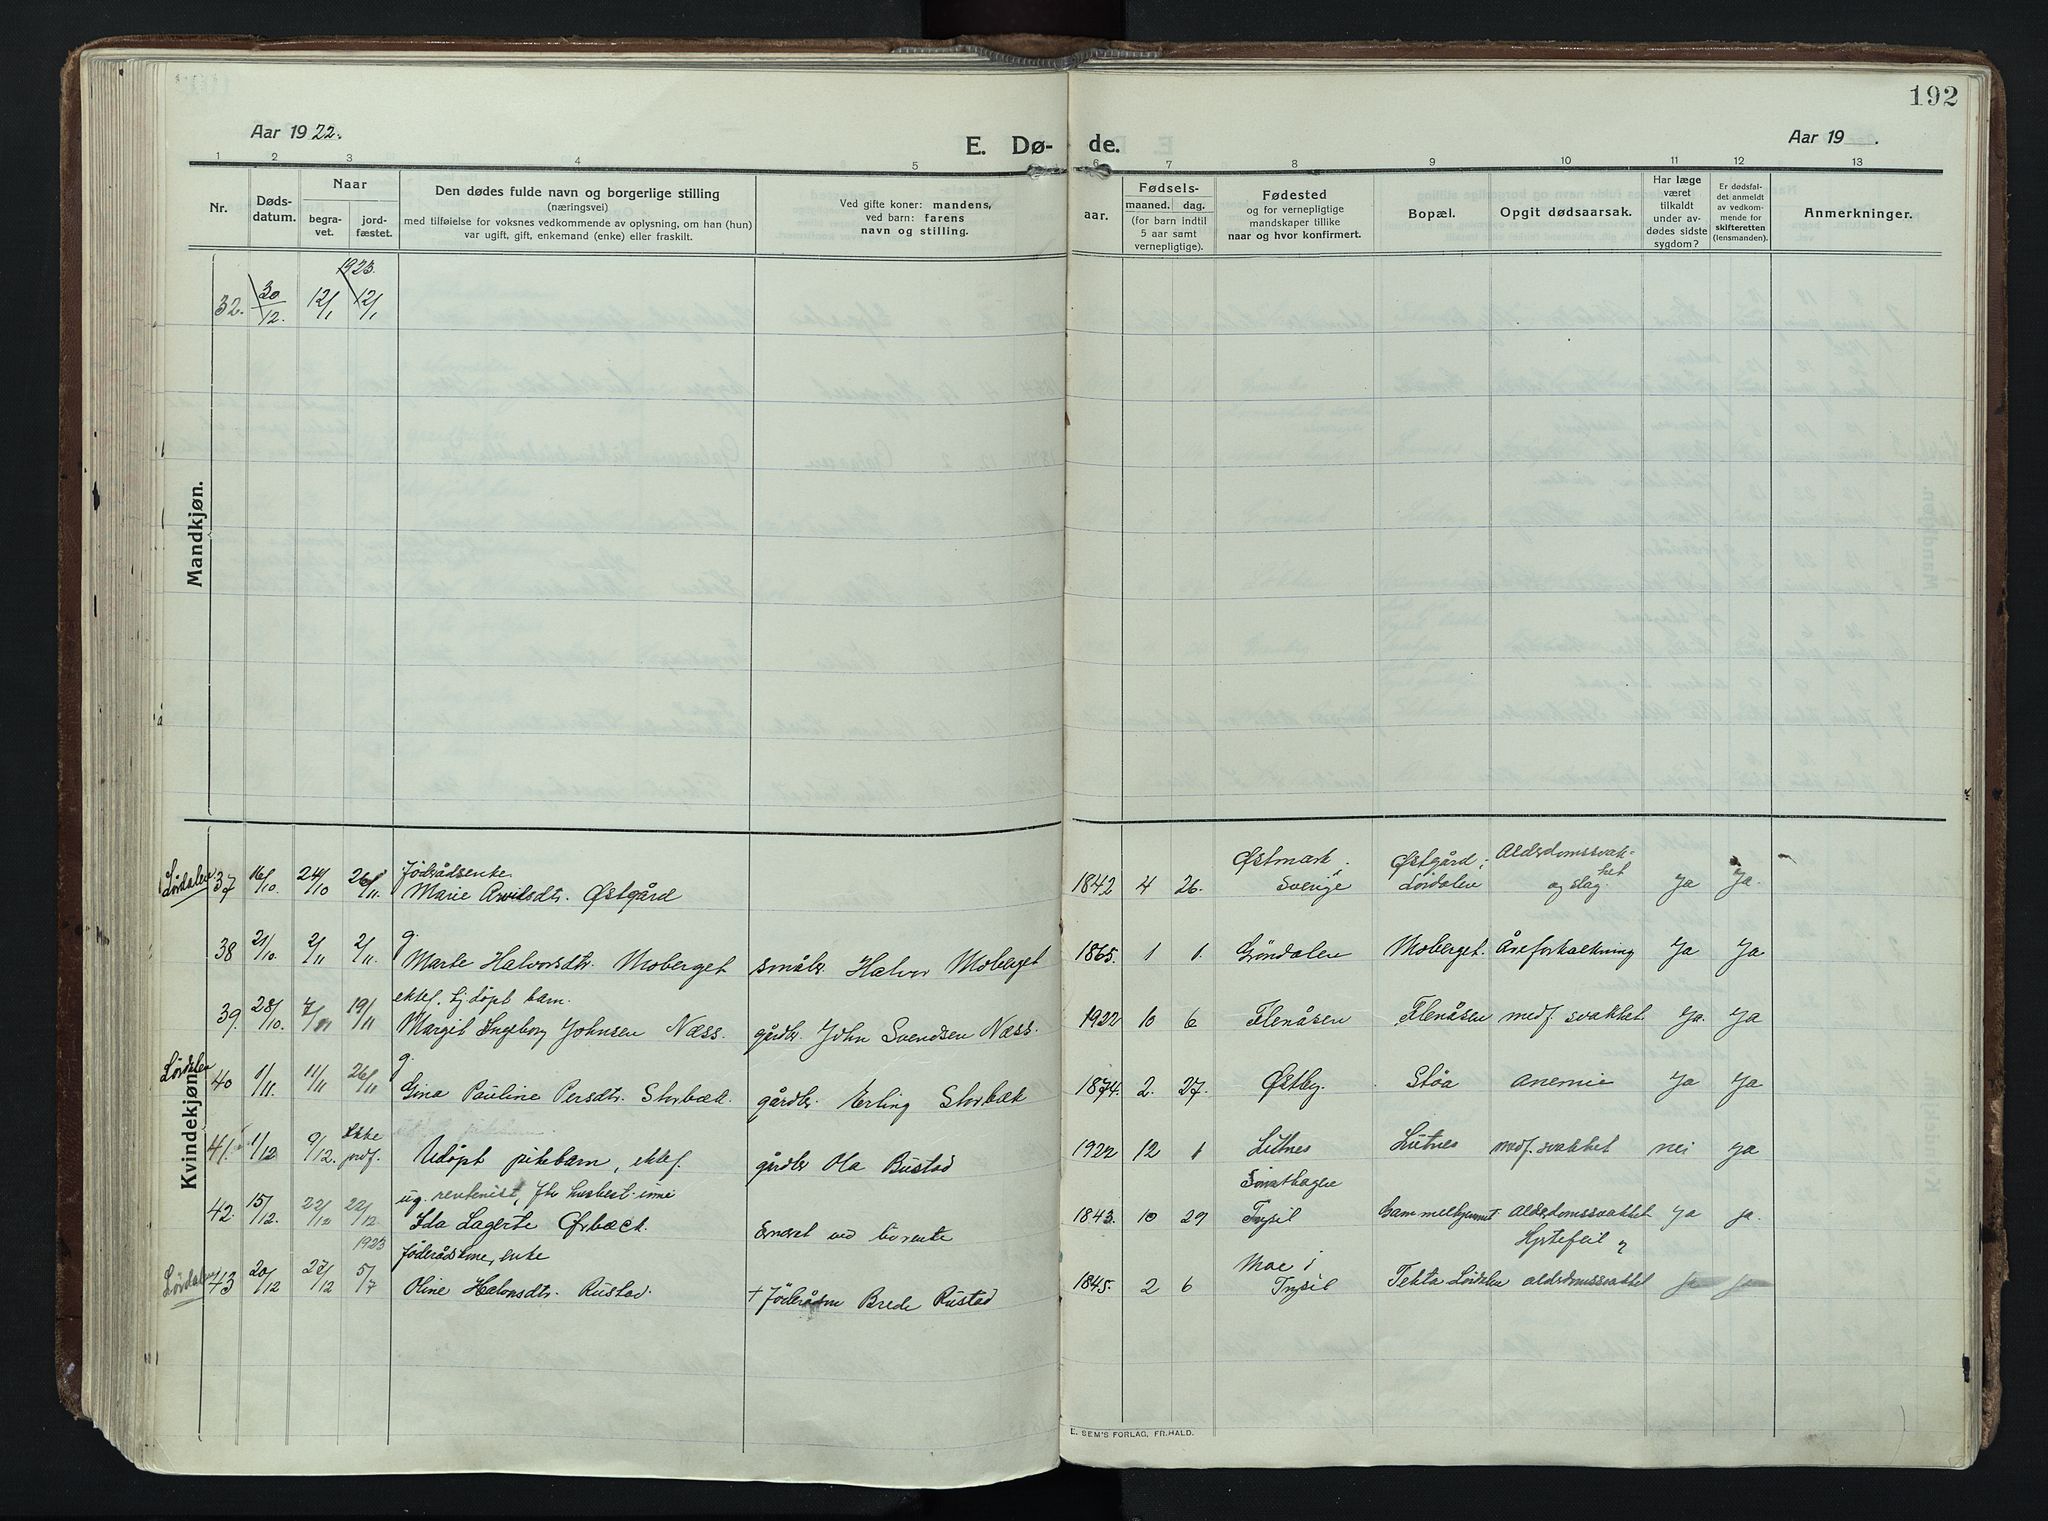 192
Aar 1922.
E. Dø- de.
Aar 19 .
1 2 3 4 5 6 7 8 9 10 11 12 13
Nr.
Døds-
datum.
Naar
begra-
vet.
jord-
fæstet.
Den dødes fulde navn og borgerlige stilling
(næringsvei)
med tilføielse for voksnes vedkommende av oplysning, om han (hun)
var ugift, gift, enkemand (enke) eller fraskilt.
Ved gifte koner: mandens,
ved barn: farens
navn og stilling.
Fødsels-
aar.
maaned. dag.
(for barn indtil
5 aar samt
vernepligtige).
Fødested
og for vernepligtige
mandskaper tillike
naar og hvor konfirmert.
Bopæl.
Opgit dødsaarsak.
Har læge
været
tilkaldt
under av-
dødes sidste
sygdom?
Er dødsfal-
det anmeldt
av vedkom-
mende for
skifteretten
(lensmanden).
Anmerkninger.
Mandkjøn.
1923.
32. 30/12. 12/1 12/1
Kvindekjøn.
Lørdalen 37 16/10. 24/10 26/11. Føderådsenke
Marie Arvidsdtr. Østgård
1842 4 26. Østmark.
Sverige
Østgård i
Lørdalen
Alderdomssvak-
het
og slag. Ja Ja.
38 21/10. 2/11 2/11. g.
Marte Halvorsdtr. Moberget småbr. Halvor Moberget 1865. 1 1. Grøndalen Moberget. Åreforkalkning Ja Ja
39. 28/10. 7/11 19/11 ektef. hj. døpt barn.
Margit Ingeborg Johnsen Næss. gårdbr. John Svendsen Næss. 1922 10 6 Flenåsen Flenåsen medf. svakhet. Ja. Ja
Lørdalen 40 1/11. 11/11 26/11 g.
Gina Pauline Persdtr. Storbæk. gårdbr. Erling Storbæk 1874. 2. 27. Østby. Støa anemie Ja Ja
41. 1/12 9/12. Ikke
jordf. Udøpt pikebarn, ektef. gårdbr Ola Bustad 1922 12 1 Lutnes Lutnes medf. svakhet nei ja
42. 15/12. 22/12 22/12 ug. rentenist, fhv husbest.inne
Ida Lagerte Ørbæck. Ernæret ved livrente 1843. 10 29 Smithagen
Trysil Gammelhjemmet Alderdomssvakhet ja ja.
Hjertefeil og
Lørdalen 43 20/12 27/12 1923
5/7 føderådskone, enke
Oline Halvorsdtr. Rustad. + Føderådsm Brede Rustad 1845. 2 6 Moe i
Trysil Tekta Lørdalen alderdomssvakhet ja ja
E. SEM'S FORLAG, FR.HALD.